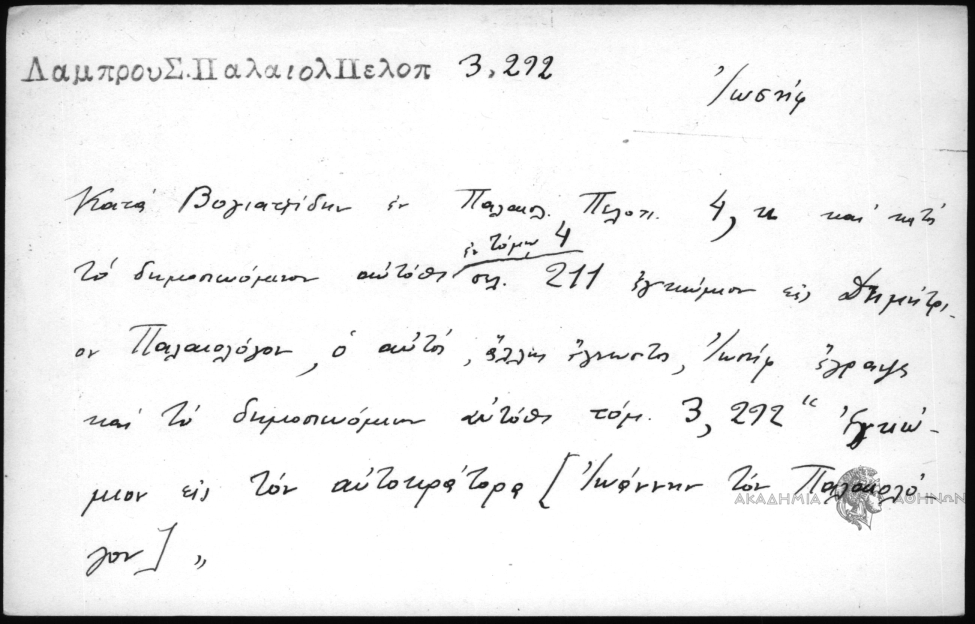 ΛαμπρουΣ.ΠαλαιολΠελοπ 3,292
Ἰωσήφ
Κατὰ Βογιατζίδην ἐν Παλαιολ. Πελοπ. 4, κ καὶ
ἐν τόμῳ 4
τὸ δημοσιευόμενον αὐτόθι σελ. 211 ἐγκώμιον εἰς Δημήτρι-
ον Παλαιολόγον, ὁ αὐτός, ἄλλως ἄγνωστος, Ἰωσήφ ἔγραψε
καὶ τὸ δημοσιευόμενον αὐτόθι τόμ. 3, 292 "Ἐγκώ-
μιον εἰς τὸν αὐτοκράτορα [Ἰωάννην τὸν Παλαιολό-
γον]"
ΑΚΑΔΗΜΙΑ ΑΘΗΝΩΝ